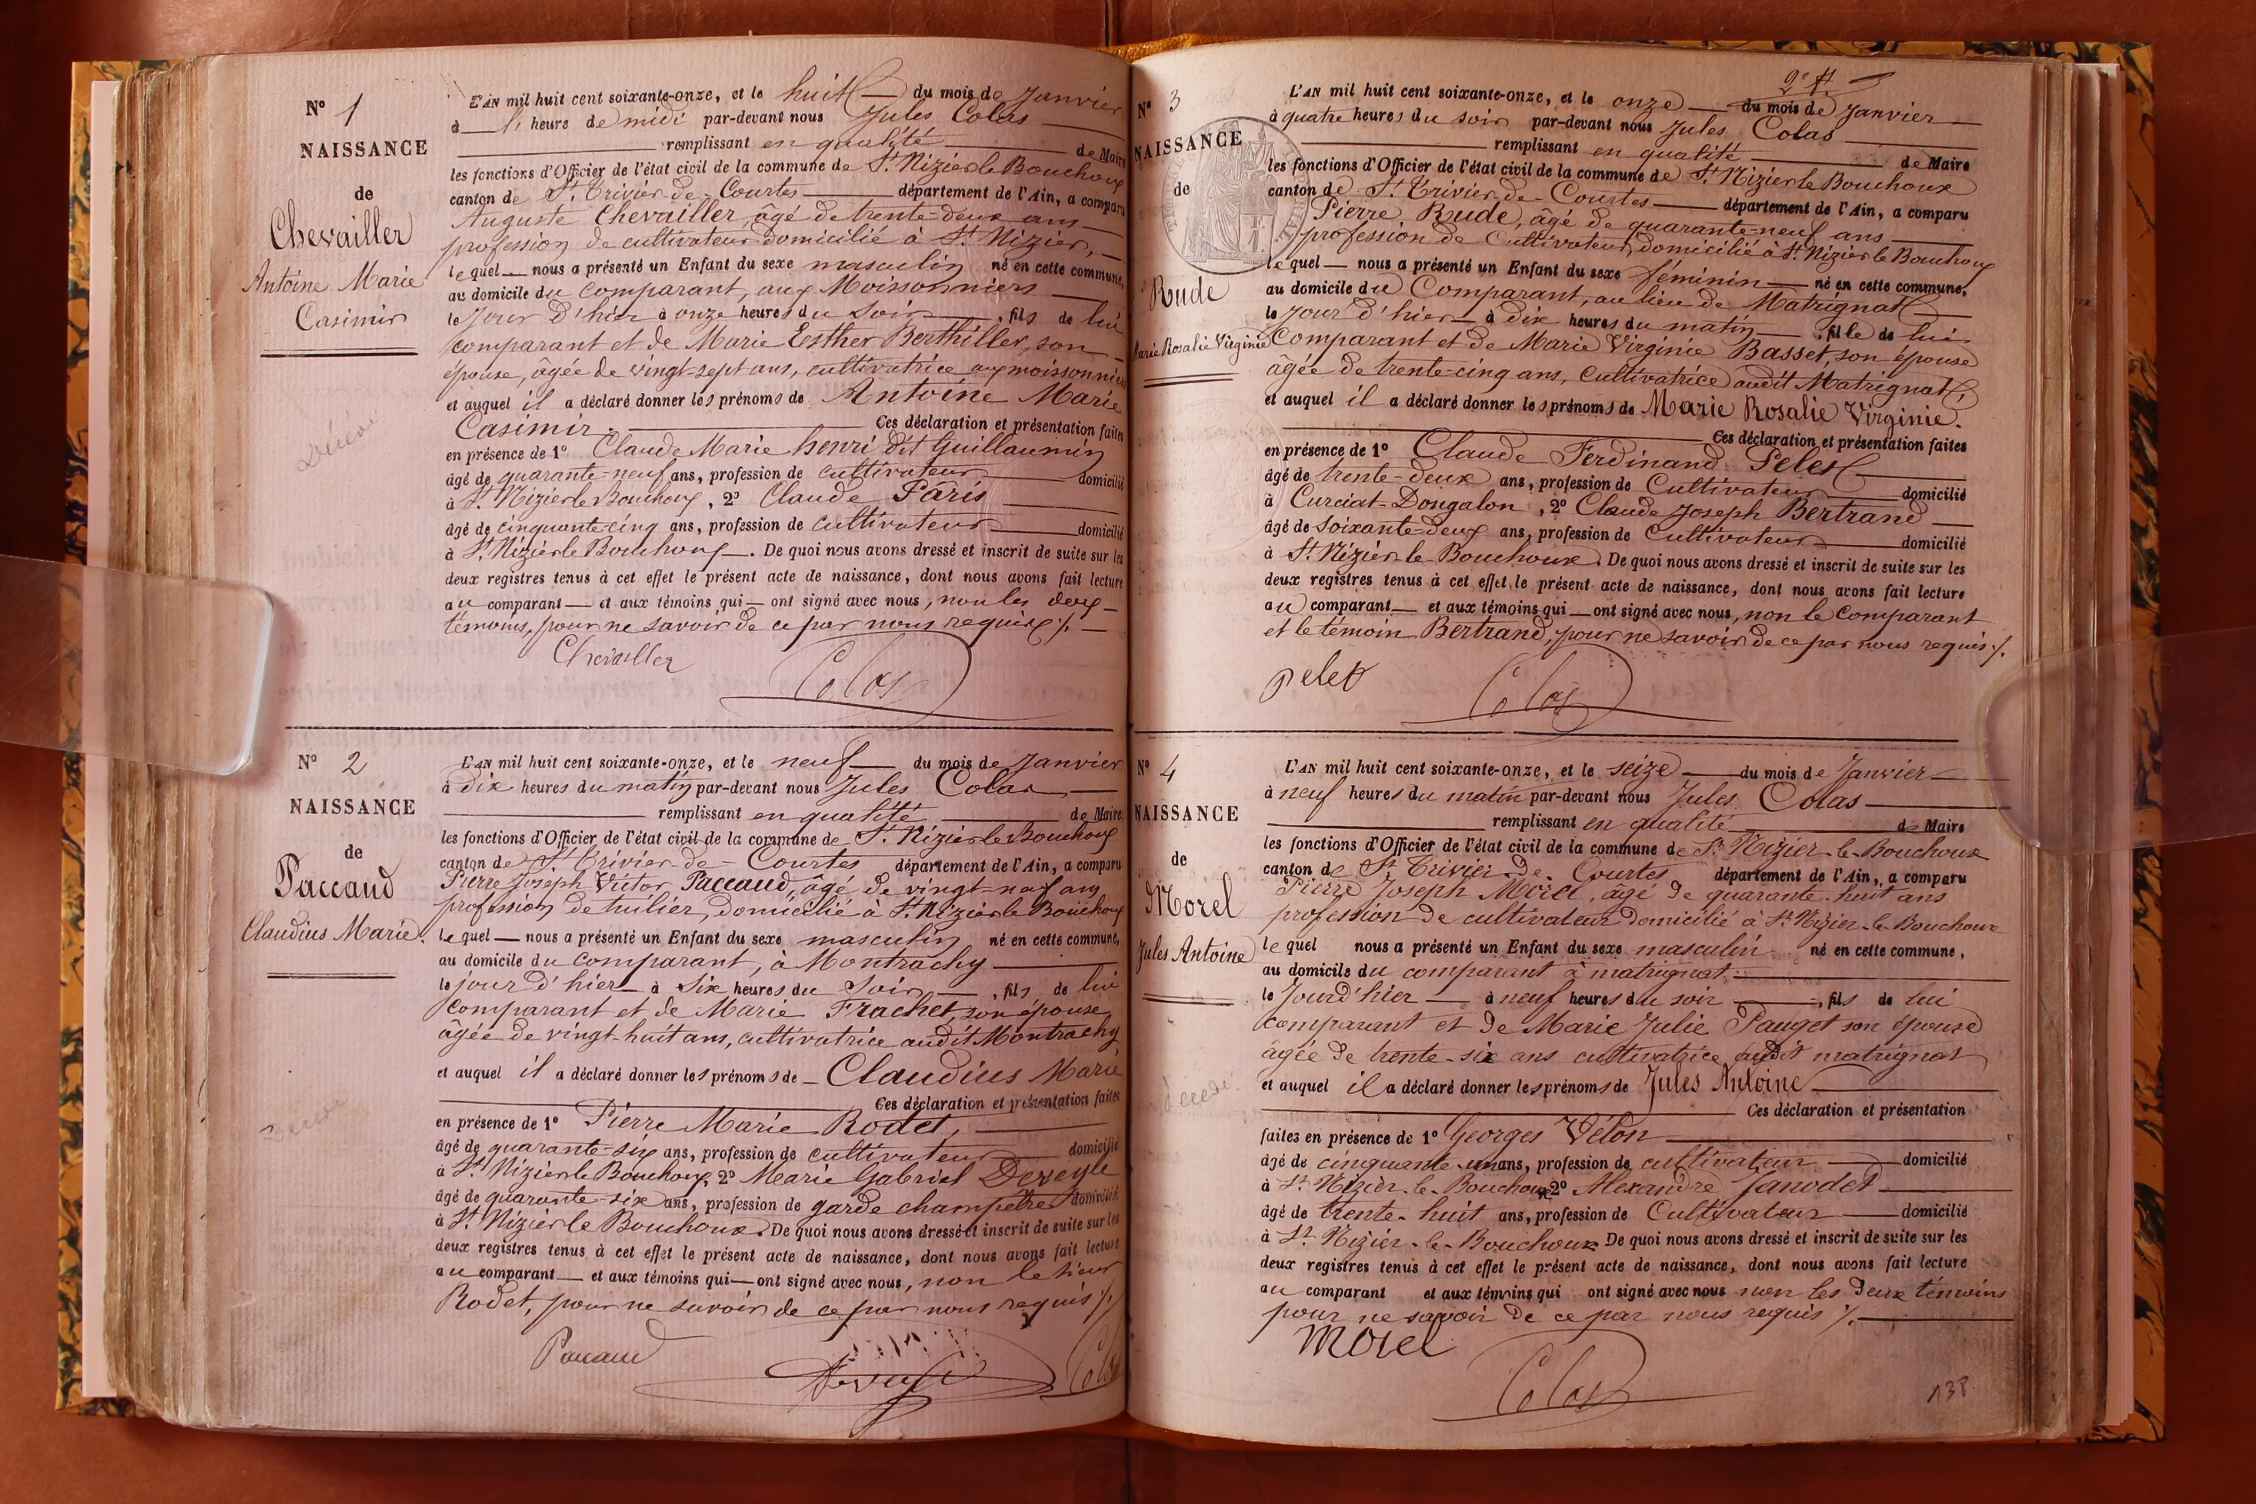 N° 1
NAISSANCE
de
Chevailler
Antoine Marie
Casimir
L'AN mil huit cent soixante-onze, et le huit du mois de Janvier
à l' heure de midi par-devant nous Jules Colas
remplissant en qualité de Maire
les fonctions d'Officier de l'état civil de la commune de St Nizier le Bouchoux
canton de St Trivier-de-Courtes département de l'Ain, a comparu
Auguste Chevailler, âgé de trente-deux ans
profession de cultivateur domicilié à St Nizier,
lequel nous a présenté un Enfant du sexe masculin né en cette commune,
au domicile du comparant, aux Moissonniers
le jour d'hier à onze heures du soir, fils de lui
comparant et de Marie Esther Berthiller, son
épouse, âgée de vingt-sept ans, cultivatrice aux moissonniers
et auquel il a déclaré donner les prénoms de Antoine Marie
Casimir. Ces déclaration et présentation faites
en présence de 1° Claude Marie henri dit Guillaumin
âgé de quarante-neuf ans, profession de cultivateur domicilié
à St Nizier le Bouchoux, 2° Claude Paris
âgé de cinquante-cinq ans, profession de cultivateur domicilié
à St Nizier le Bouchoux. De quoi nous avons dressé et inscrit de suite sur les
deux registres tenus à cet effet le présent acte de naissance, dont nous avons fait lecture
au comparant et aux témoins qui ont signé avec nous, non les deux
témoins, pour ne savoir de ce par nous requis ./.
Chevailler
Colas
N° 2
NAISSANCE
de
Paccaud
Claudius Marie.
L'AN mil huit cent soixante-onze, et le neuf du mois de Janvier
à dix heures du matin par-devant nous Jules Colas
remplissant en qualité de Maire
les fonctions d'Officier de l'état civil de la commune de St Nizier le Bouchoux
canton de St Trivier-de-Courtes département de l'Ain, a comparu
Pierre Joseph Victor Paccaud, âgé de vingt-neuf ans,
profession de tuilier, domicilié à St Nizier le Bouchoux
lequel nous a présenté un Enfant du sexe masculin né en cette commune,
au domicile du comparant, à Montrachy
le jour d'hier à six heures du soir, fils de lui
comparant et de Marie Frachet, son épouse,
âgée de vingt-huit ans, cultivatrice audit Montrachy
et auquel il a déclaré donner les prénoms de Claudius Marie
Ces déclaration et présentation faites
en présence de 1° Pierre Marie Rodet,
âgé de quarante-six ans, profession de cultivateur domicilié
à St Nizier le Bouchoux, 2° Marie Gabriel Dereyle
âgé de quarante-six ans, profession de garde champêtre domicilié
à St Nizier le Bouchoux. De quoi nous avons dressé et inscrit de suite sur les
deux registres tenus à cet effet le présent acte de naissance, dont nous avons fait lecture
au comparant et aux témoins qui ont signé avec nous, non le sieur
Rodet, pour ne savoir de ce par nous requis ./.
Paccaud
Colas
2e f
N° 3
NAISSANCE
de
Rude
Marie Rosalie Virginie
L'AN mil huit cent soixante-onze, et le onze du mois de Janvier
à quatre heures du soir par-devant nous Jules Colas
remplissant en qualité de Maire
les fonctions d'Officier de l'état civil de la commune de St Nizier le Bouchoux
canton de St Trivier-de-Courtes département de l'Ain, a comparu
Pierre Rude, âgé de quarante-neuf ans
profession de Cultivateur, domicilié à St Nizier le Bouchoux
lequel nous a présenté un Enfant du sexe féminin né en cette commune,
au domicile du Comparant, au lieu de Matrignat
le jour d'hier à dix heures du matin, fille de lui
comparant et de Marie Virginie Basset, son épouse
âgée de trente-cinq ans, Cultivatrice audit Matrignat,
et auquel il a déclaré donner les prénoms de Marie Rosalie Virginie.
Ces déclaration et présentation faites
en présence de 1° Claude Ferdinand Pelet
âgé de trente-deux ans, profession de Cultivateur domicilié
à Curciat-Dongalon, 2° Claude Joseph Bertrand
âgé de soixante-deux ans, profession de Cultivateur domicilié
à St Nizier le Bouchoux. De quoi nous avons dressé et inscrit de suite sur les
deux registres tenus à cet effet le présent acte de naissance, dont nous avons fait lecture
au comparant et aux témoins qui ont signé avec nous, non le Comparant
et le témoin Bertrand, pour ne savoir de ce par nous requis ./.
pelet
Colas
N° 4
NAISSANCE
de
Morel
Jules Antoine
L'AN mil huit cent soixante-onze, et le seize du mois de Janvier
à neuf heures du matin par-devant nous Jules Colas
remplissant en qualité de Maire
les fonctions d'Officier de l'état civil de la commune de St Nizier-le-Bouchoux
canton de St Trivier-de-Courtes département de l'Ain, a comparu
Pierre Joseph Morel, âgé de quarante-huit ans
profession de cultivateur domicilié à St Nizier-le-Bouchoux
lequel nous a présenté un Enfant du sexe masculin né en cette commune,
au domicile du comparant à matrignat
le Jourd'hier à neuf heures du soir, fils de lui
comparant et de Marie Julie Pauget son épouse
âgée de trente-six ans cultivatrice audit matrignat
et auquel il a déclaré donner les prénoms de Jules Antoine
Ces déclaration et présentation
faites en présence de 1° Georges Velon
âgé de cinquante-un ans, profession de cultivateur domicilié
à St Nizier-le-Bouchoux 2° Alexandre Janodet
âgé de trente-huit ans, profession de Cultivateur domicilié
à St Nizier-le-Bouchoux De quoi nous avons dressé et inscrit de suite sur les
deux registres tenus à cet effet le présent acte de naissance, dont nous avons fait lecture
au comparant et aux témoins qui ont signé avec nous non les deux témoins
pour ne savoir de ce par nous requis ./.
Morel
Colas
138